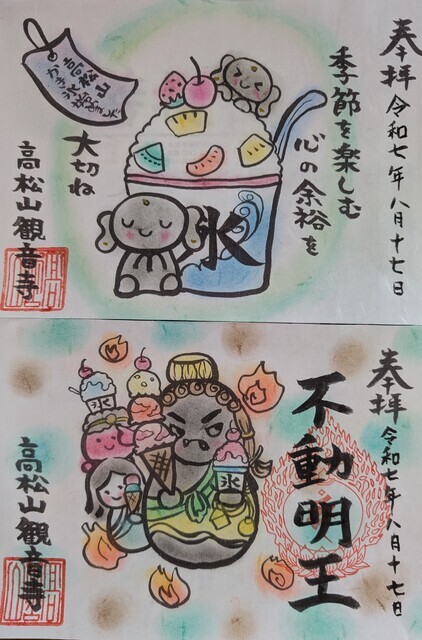 奉拝 令和七年八月十七日
季節を楽しむ
心の余裕を
大切ね
高松山
かき氷始めました
氷
高松山観音寺
奉拝 令和七年八月十七日
不動明王
氷
氷
高松山観音寺